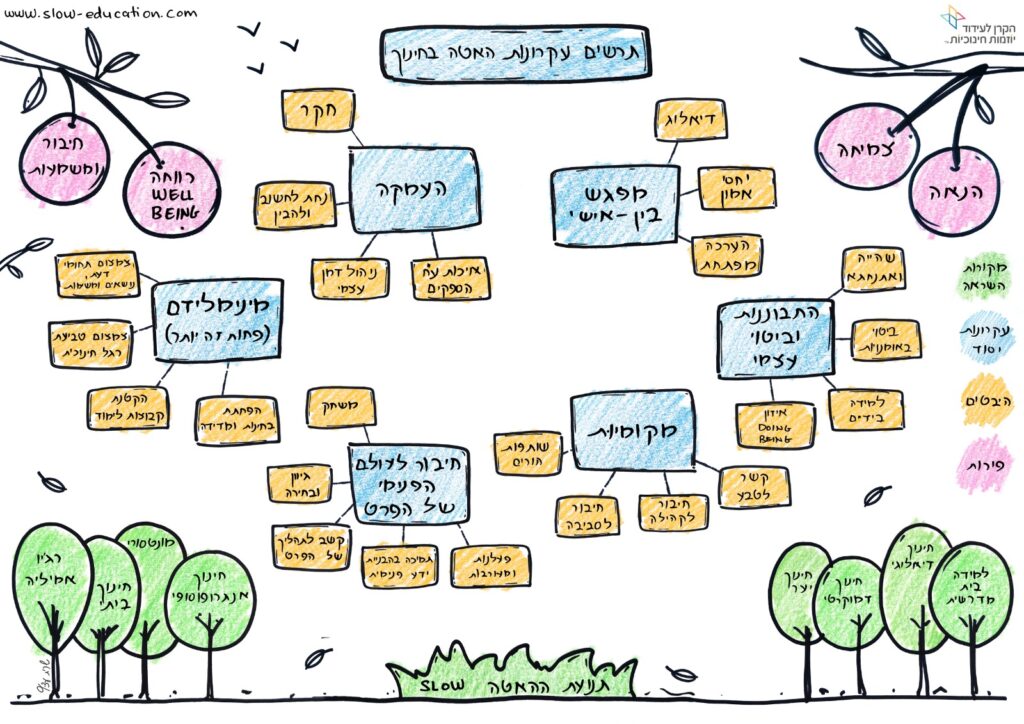 www.slow-education.com
הקרן לעידוד
יוזמות חינוכיות
תרשים עקרונות האטה בחינוך
חיבור
ומשמעות
רווחה
WELL
BEING
צמיחה
הנאה
חקר
העמקה
זמן לחשוב
ולהבין
ניהול זמן
עצמי
איכות ע״ח
הספקים
דיאלוג
מפגש
בין-אישי
יחסי
אמון
הערכה
מפתחת
צמצום תחומי
דעת,
נושאים ומשימות
מינימליזם
(פחות זה יותר)
צמצום טביעת
רגל חינוכית
הקטנת
קבוצות לימוד
הפחתת
בחינות ומדידה
שהייה
ואתנחתא
התבוננות
וביטוי
עצמי
ביטוי
באומנויות
למידה
בידיים
איזון
DOING
BEING
מקורות
השראה
עקרונות
יסוד
היבטים
פירות
משחק
חיבור לעולם
הפנימי
של הפרט
גיוון
ובחירה
קשב לתהליך
של הפרט
תמיכה בהבניית
ידע פנימית
פעלנות
ומעורבות
מקומיות
שותפות
הורים
חיבור
לסביבה
חיבור
לקהילה
קשר
לטבע
רג'יו
אמיליה
חינוך
ביתי
מונטסורי
חינוך
אנתרופוסופי
חינוך
יער
חינוך
דמוקרטי
חינוך
דיאלוגי
למידה
בית
מדרשית
תנועת ההאטה SLOW